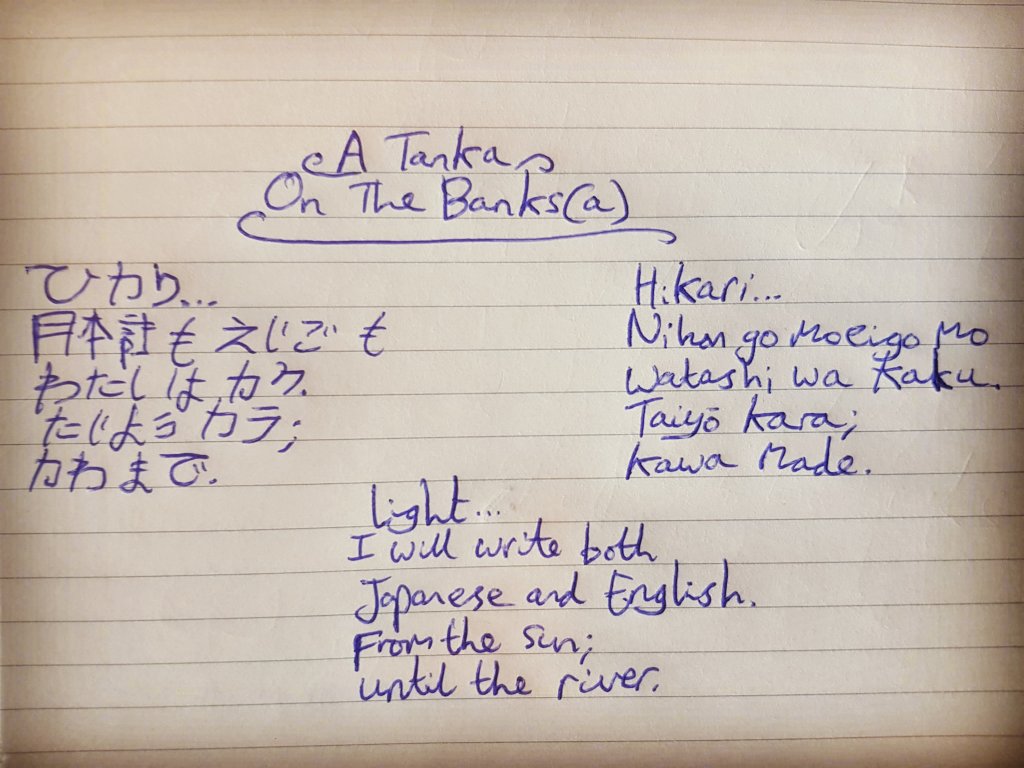 A Tanka
On The Banks(a)
ひかり...
月本計も えじごも
わたしは カク.
たじよう カラ;
かわまで.
Hikari...
Nihon go mo eigo mo
watashi wa kaku.
Taiyō kara;
kawa made.
light...
I will write both
Japanese and English.
From the sun;
until the river.